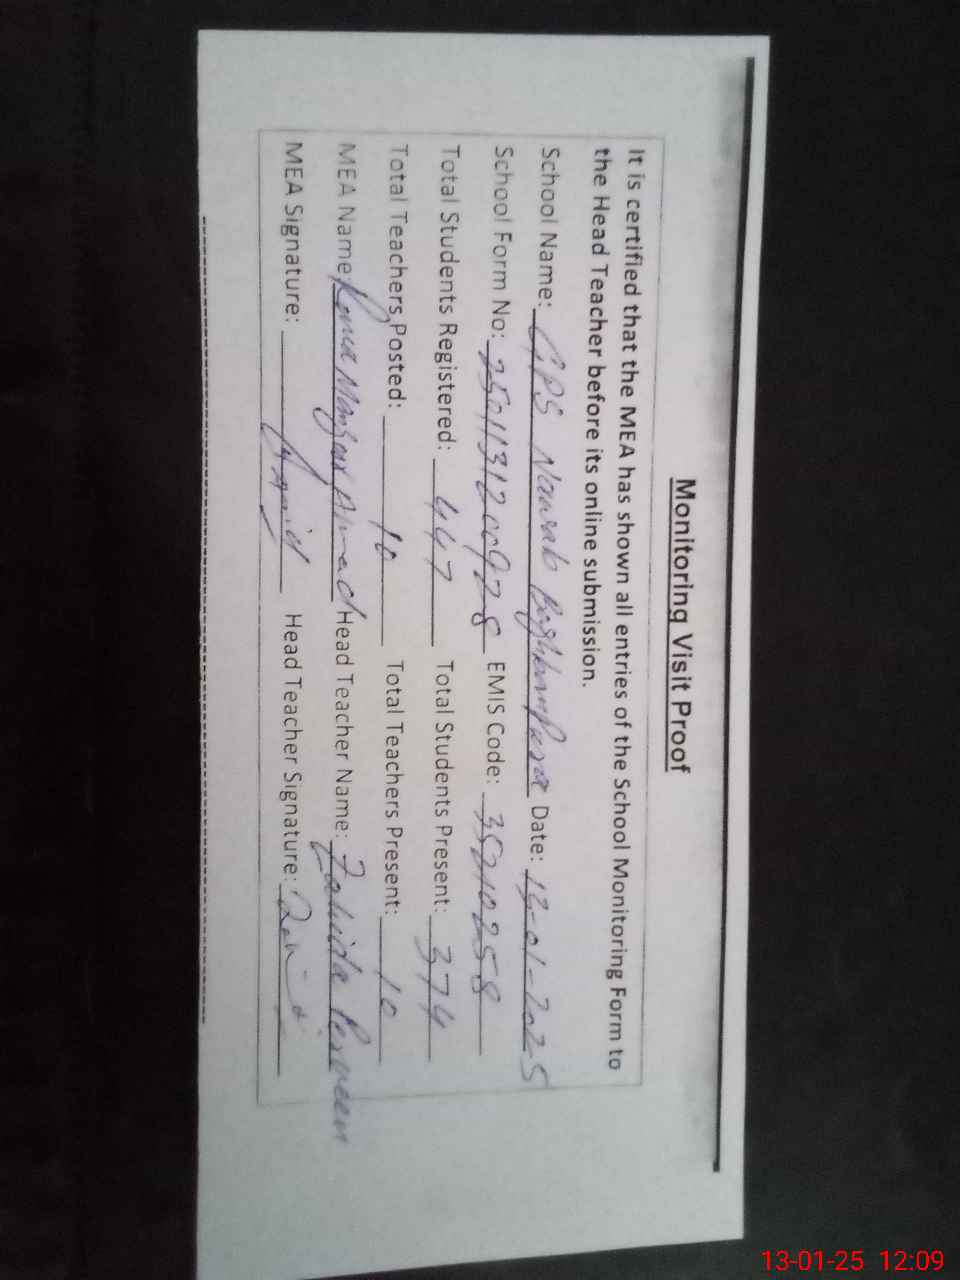 Monitoring Visit Proof
It is certified that the MEA has shown all entries of the School Monitoring Form to
the Head Teacher before its online submission.
School Name: GPS Nawab Date: 13-01-2025
School Form No: EMIS Code: 35210258
Total Students Registered: 447 Total Students Present: 374
Total Teachers Posted: 10 Total Teachers Present: 10
MEA Name: Rana Head Teacher Name: Zahida Perveen
MEA Signature: Head Teacher Signature:
13-01-25 12:09